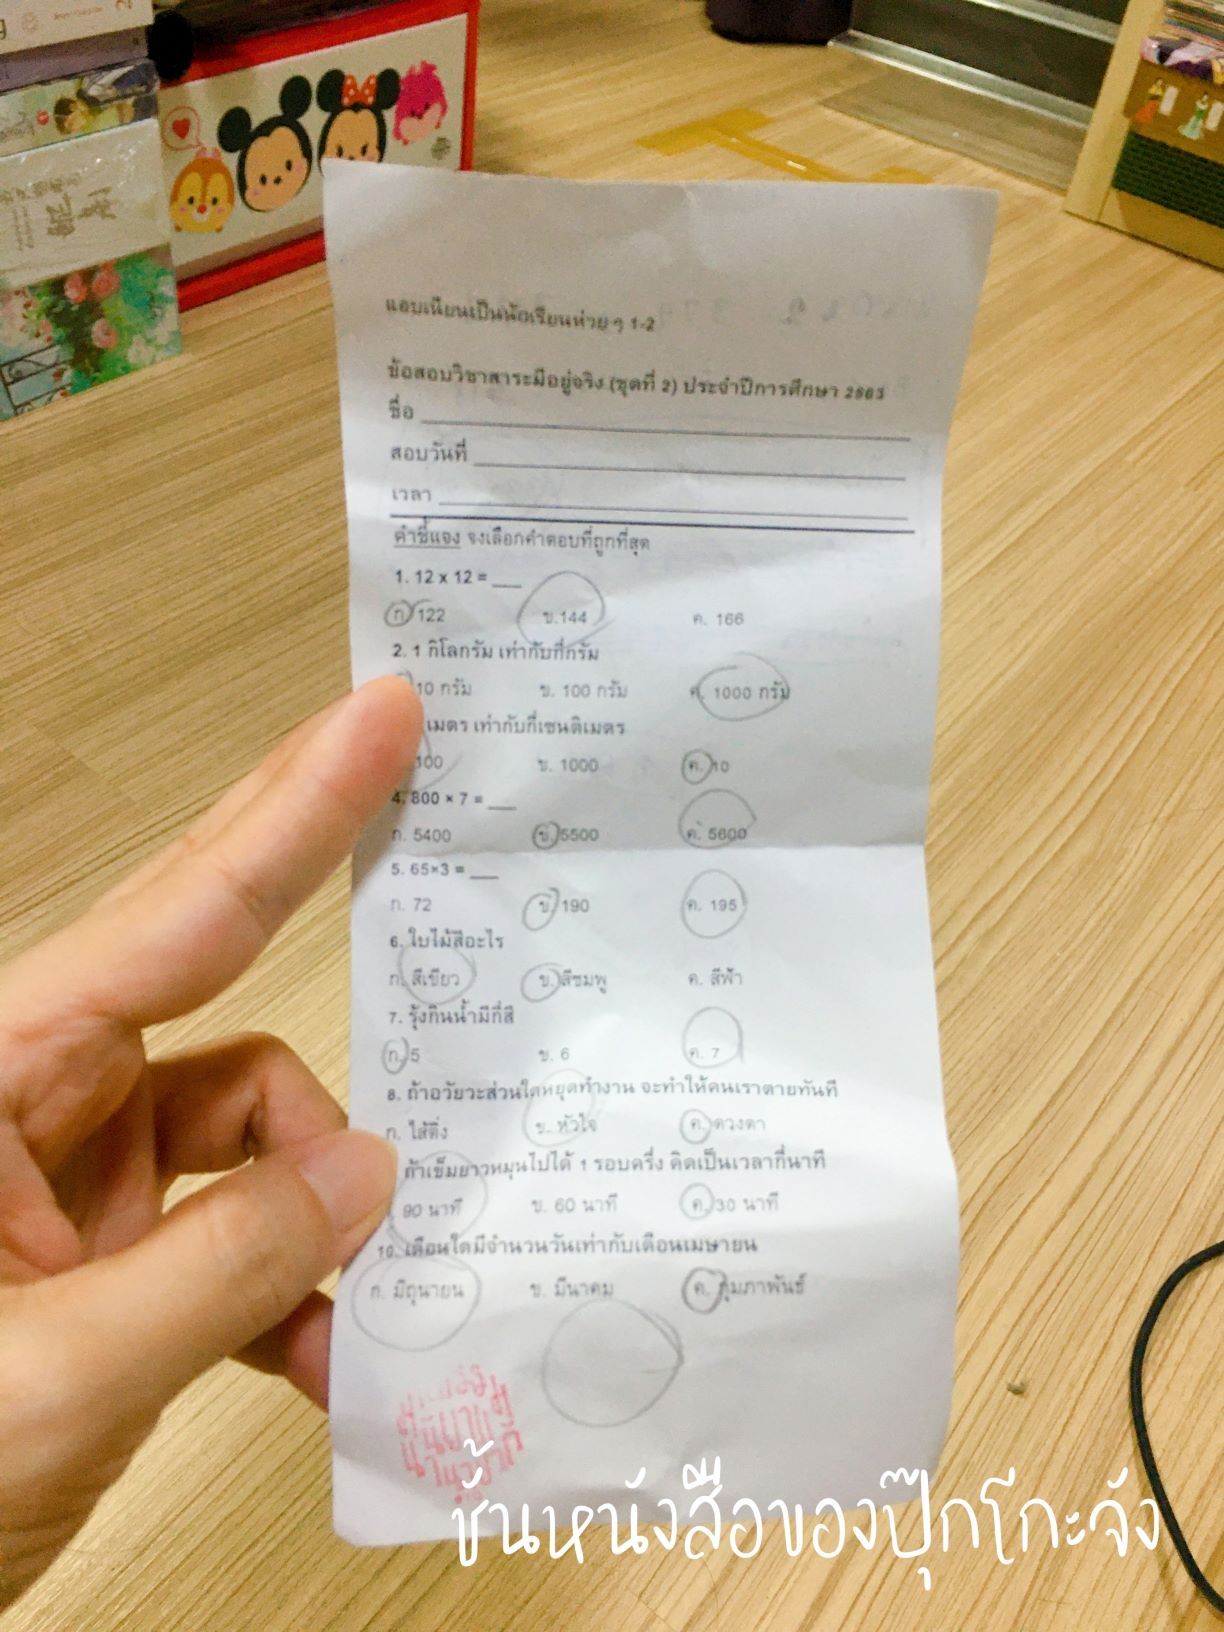 แอบเนียนเป็นนักเรียนห่วย ๆ 1-2
ข้อสอบวิชาสาระมีอยู่จริง (ชุดที่ 2) ประจำปีการศึกษา 2565
ชื่อ
สอบวันที่
เวลา
คำชี้แจง จงเลือกคำตอบที่ถูกที่สุด
1. 12 x 12 = ___
ก 122 ข.144 ค. 166
2. 1 กิโลกรัม เท่ากับกี่กรัม
10 กรัม ข. 100 กรัม ค. 1000 กรัม
เมตร เท่ากับกี่เซนติเมตร
100 ข. 1000 ค. 10
4. 800 × 7 = ___
ก. 5400 ข. 5500 ค. 5600
5. 65×3 = ___
ก. 72 ข. 190 ค. 195
6. ใบไม้สีอะไร
ก. สีเขียว ข. สีชมพู ค. สีฟ้า
7. รุ้งกินน้ำมีกี่สี
ก. 5 ข. 6 ค. 7
8. ถ้าอวัยวะส่วนใดหยุดทำงาน จะทำให้คนเราตายทันที
ก. ไส้ติ่ง ข. หัวใจ ค. ดวงตา
ถ้าเข็มยาวหมุนไปได้ 1 รอบครึ่ง คิดเป็นเวลากี่นาที
90 นาที ข. 60 นาที ค. 30 นาที
10. เดือนใดมีจำนวนวันเท่ากับเดือนเมษายน
ก. มิถุนายน ข. มีนาคม ค. กุมภาพันธ์
ชั้นหนังสือของปุ๊กโกะจัง